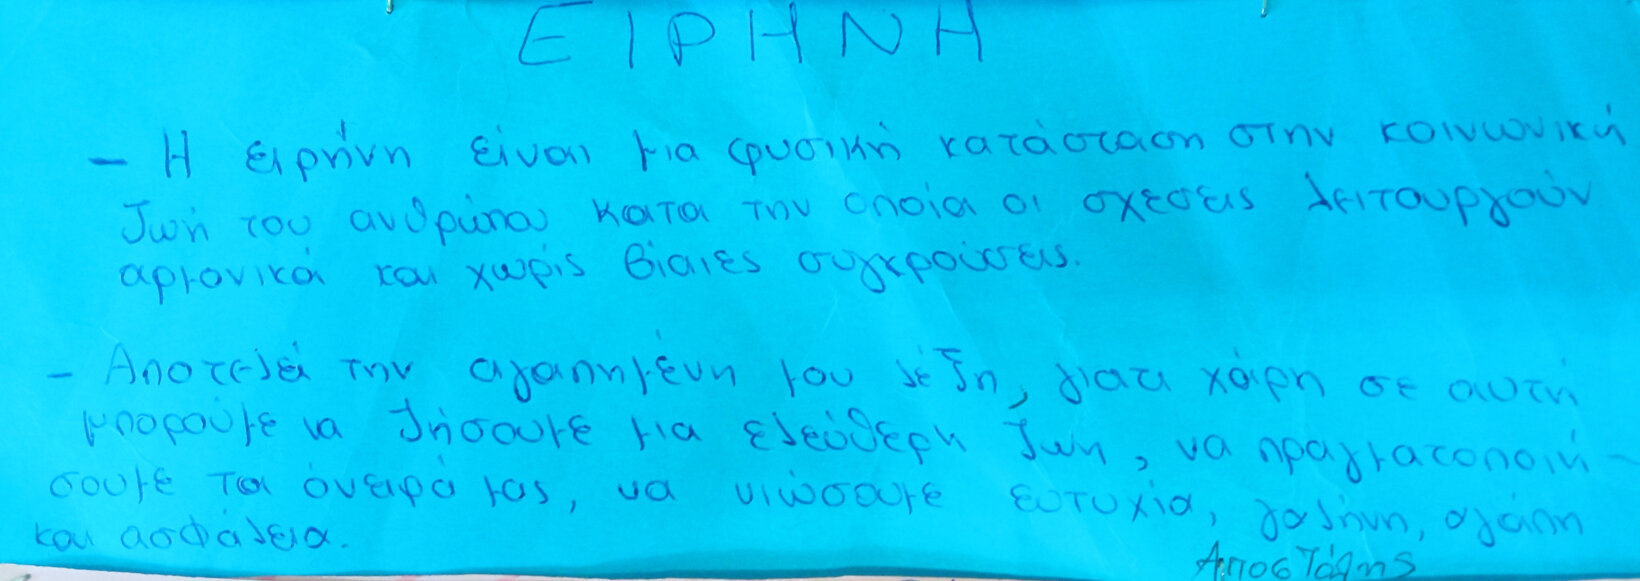 ΕΙΡΗΝΗ
- Η ειρήνη είναι μια φυσική κατάσταση στην κοινωνική
ζωή του ανθρώπου κατα την οποία οι σχεσεις λειτουργούν
αρμονικά και χωρίς βίαιες συγκρούσεις.
- Αποτελεί την αγαπημένη μου λέξη, γιατι χάρη σε αυτή
μπορούμε να ζήσουμε μια ελεύθερη ζωη, να πραγματοποιή-
σουμε τα όνειρά μας, να νιώσουμε ευτυχία, γαλήνη, αγάπη
και ασφάλεια.